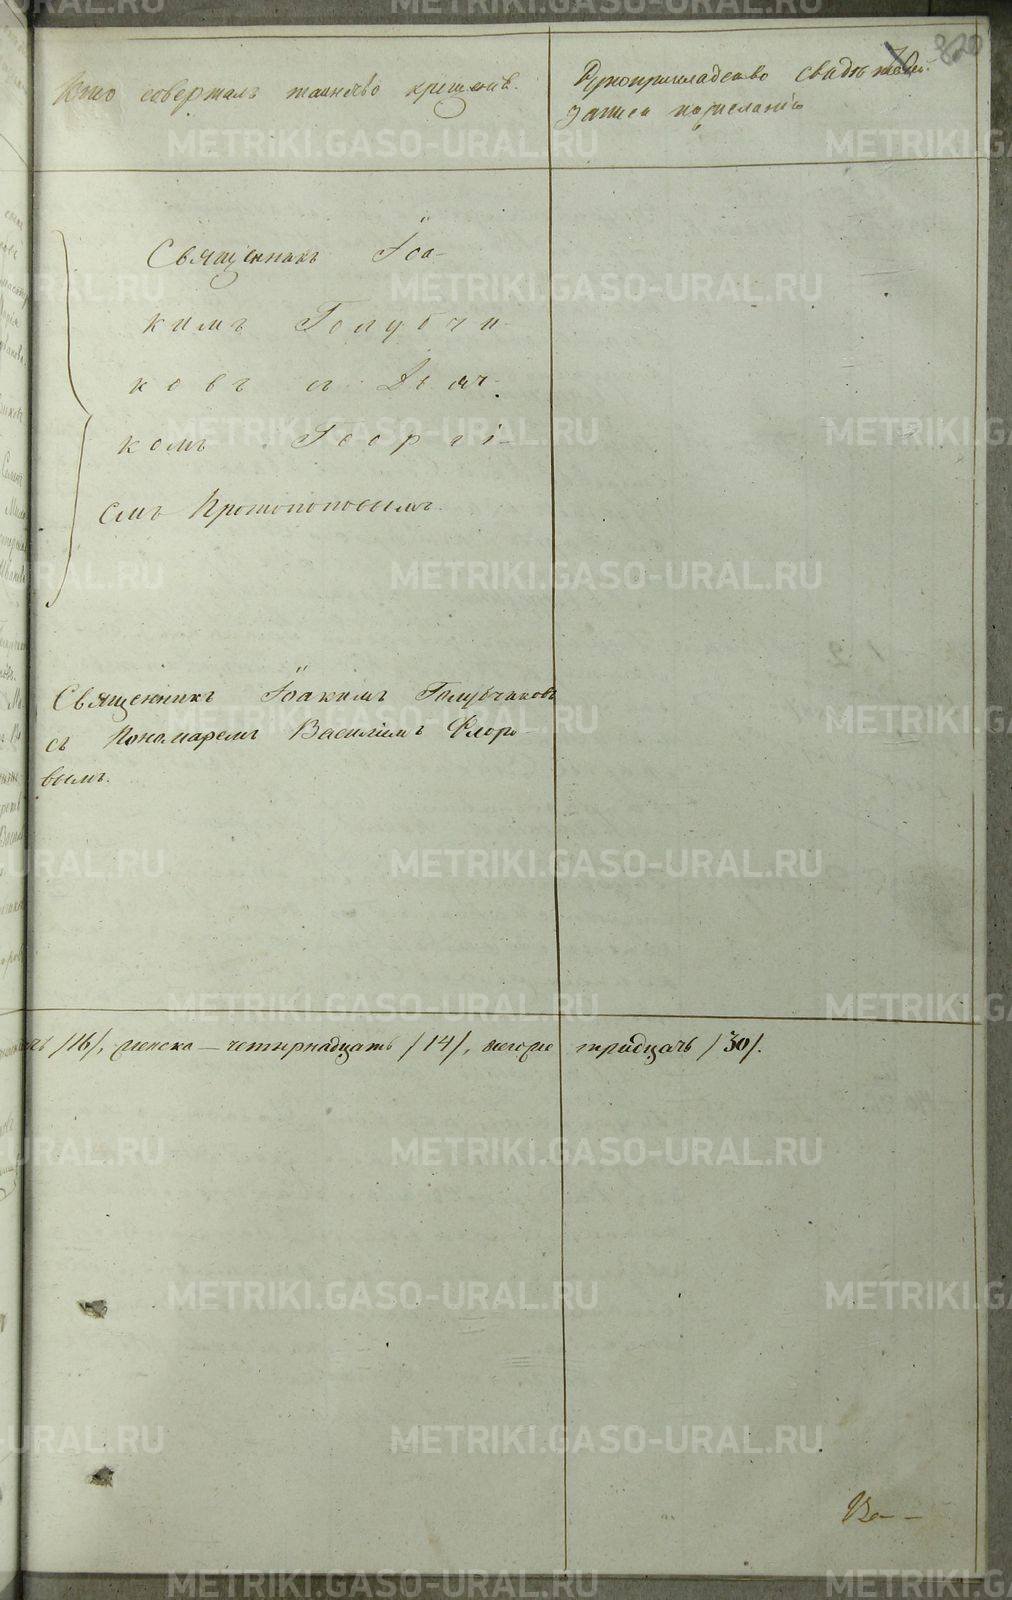 820
Кто совершалъ таинство крещенія.
Рукоприкладство свидѣтелей
записи по желанію
Священникъ Іоа-
кимъ Голубчи-
ковъ съ Дьяч-
комъ Георгі-
емъ Протопоповымъ.
Священникъ Іоакимъ Голубчиковъ
съ Пономаремъ Василіемъ Флоро-
вымъ.
/16/, женска — четырнадцать /14/, всего же тридцать /30/.